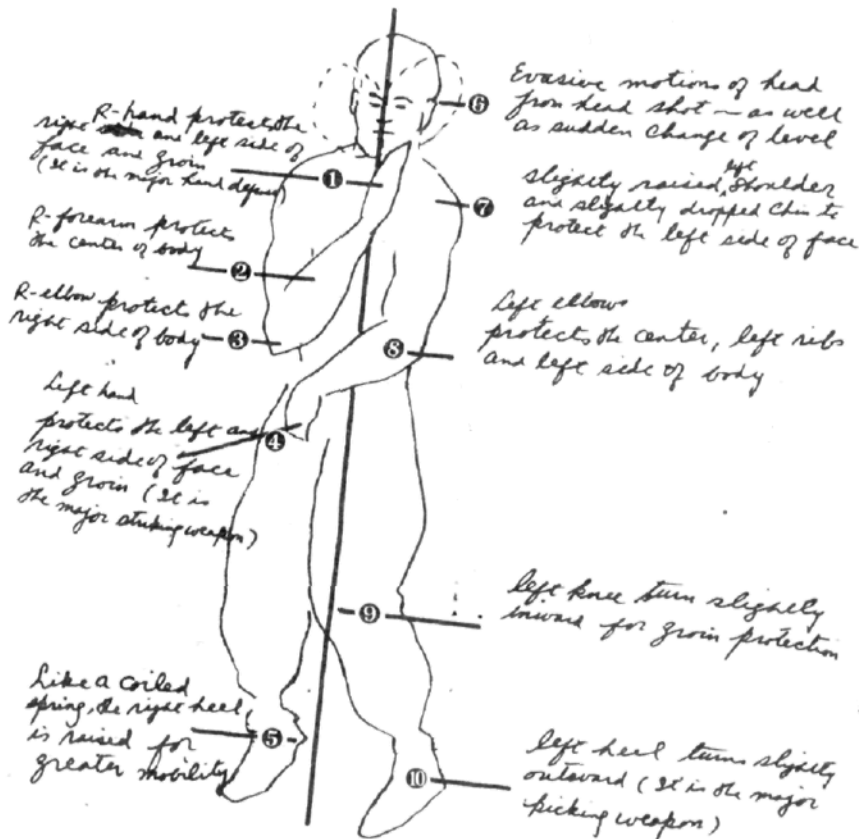 R-hand protects the
right and left side of
face and groin
(It is the major hand defense
❶
R-forearm protects
the center of body
❷
R-elbow protects the
right side of body
❸
Left hand
protects the left and
right side of face
and groin (It is
the major striking weapon)
❹
Like a coiled
spring, the right heel
is raised for
greater mobility
❺
Evasive motions of head
from head shot — as well
as sudden change of level
❻
slightly raised, left shoulder
and slightly dropped chin to
protect the left side of face
❼
Left elbows
protects the center, left ribs
and left side of body
❽
left knee turn slightly
inward for groin protection
❾
left heel turns slightly
outward (It is the major
kicking weapon)
❿